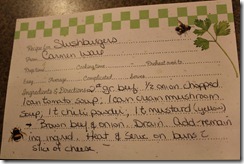 Recipe for Slushburgers
From Carmen Wall
Easy Average Complicated Serves
Ingredients & Directions: 2# gr. buf, 1/2 onion chopped
1 can tomato soup, 1 can cream mushroom
Soup, 1t chili powder, 1t mustard (yellow)
Brown buf & onion. Drain. Add remain
ing ingred. Heat & serve on buns c
slice of cheese